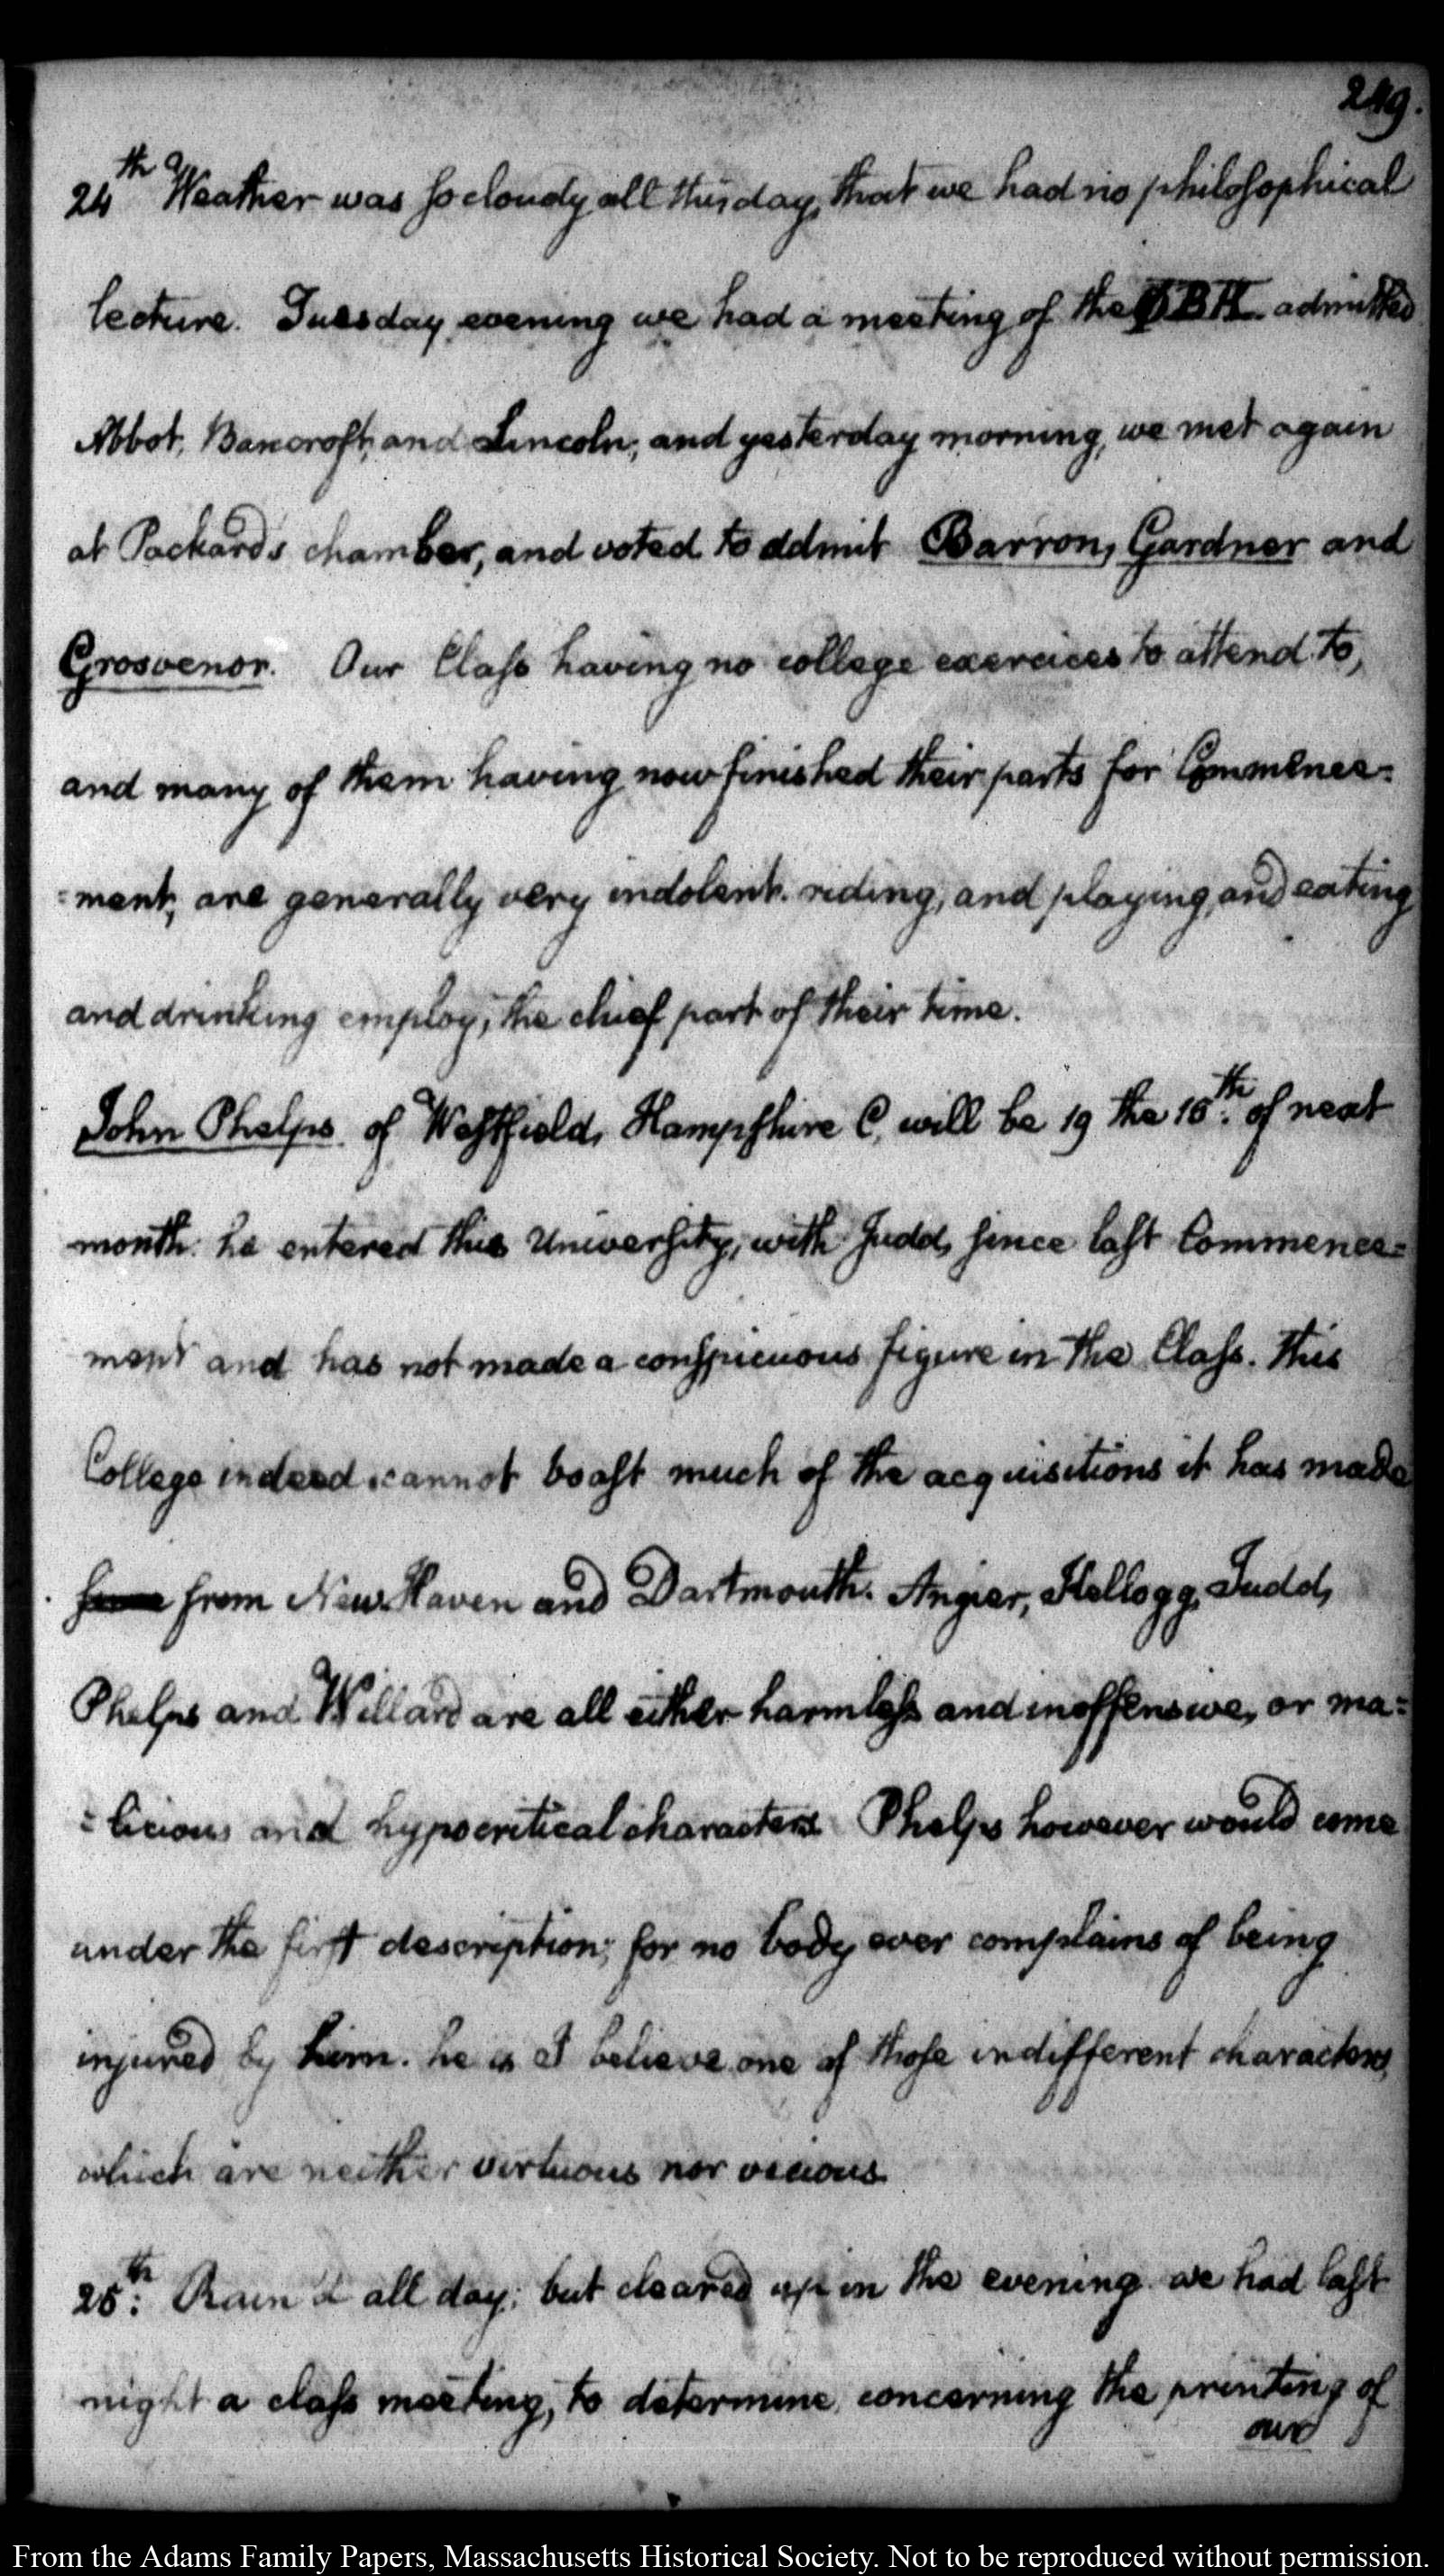 249.
24th Weather was so cloudy all this day, that we had no philosophical
lecture. Tuesday evening we had a meeting of the ΦBK. admitted
Abbot, Bancroft, and Lincoln; and yesterday morning, we met again
at Packard's chamber, and voted to admit Barron, Gardner and
Grosvenor. Our Class having no college exercices to attend to,
and many of them having now finished their parts for Commence=
=ment, are generally very indolent. riding, and playing, and eating
and drinking employ, the chief part of their time.
John Phelps of Westfield, Hampshire C, will be 19 the 15th. of next
month. he entered this University, with Judd, since last Commence=
ment and has not made a conspicuous figure in the Class. This
College indeed cannot boast much of the acquisitions it has made
from New Haven and Dartmouth. Angier, Kellogg, Judd,
Phelps and Willard are all either harmless and inoffensive, or ma=
=licious and hypocritical characters. Phelps however would come
under the first description; for no body ever complains of being
injured by him. he is I believe one of those indifferent characters,
which are neither virtuous nor vicious.
25th: Rain'd all day; but cleared up in the evening. we had last
night a class meeting, to determine, concerning the printing of
our
From the Adams Family Papers, Massachusetts Historical Society. Not to be reproduced without permission.